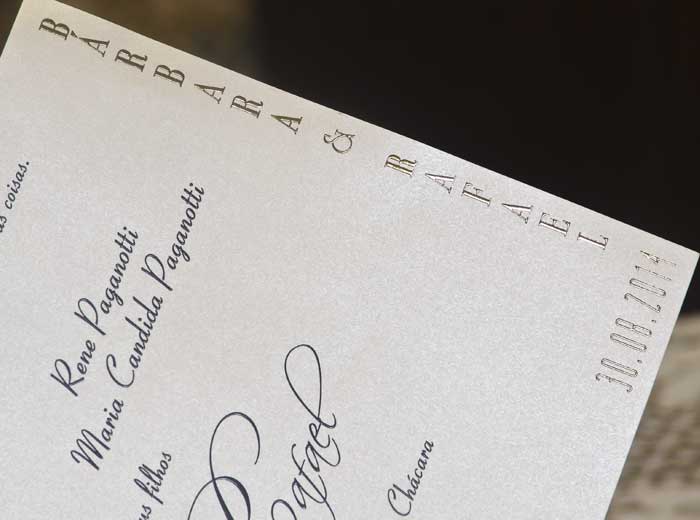 BÁRBARA & RAFAEL
30.08.2014
as coisas.
Rene Paganotti
Maria Candida Paganotti
filhos
Rafael
Chácara